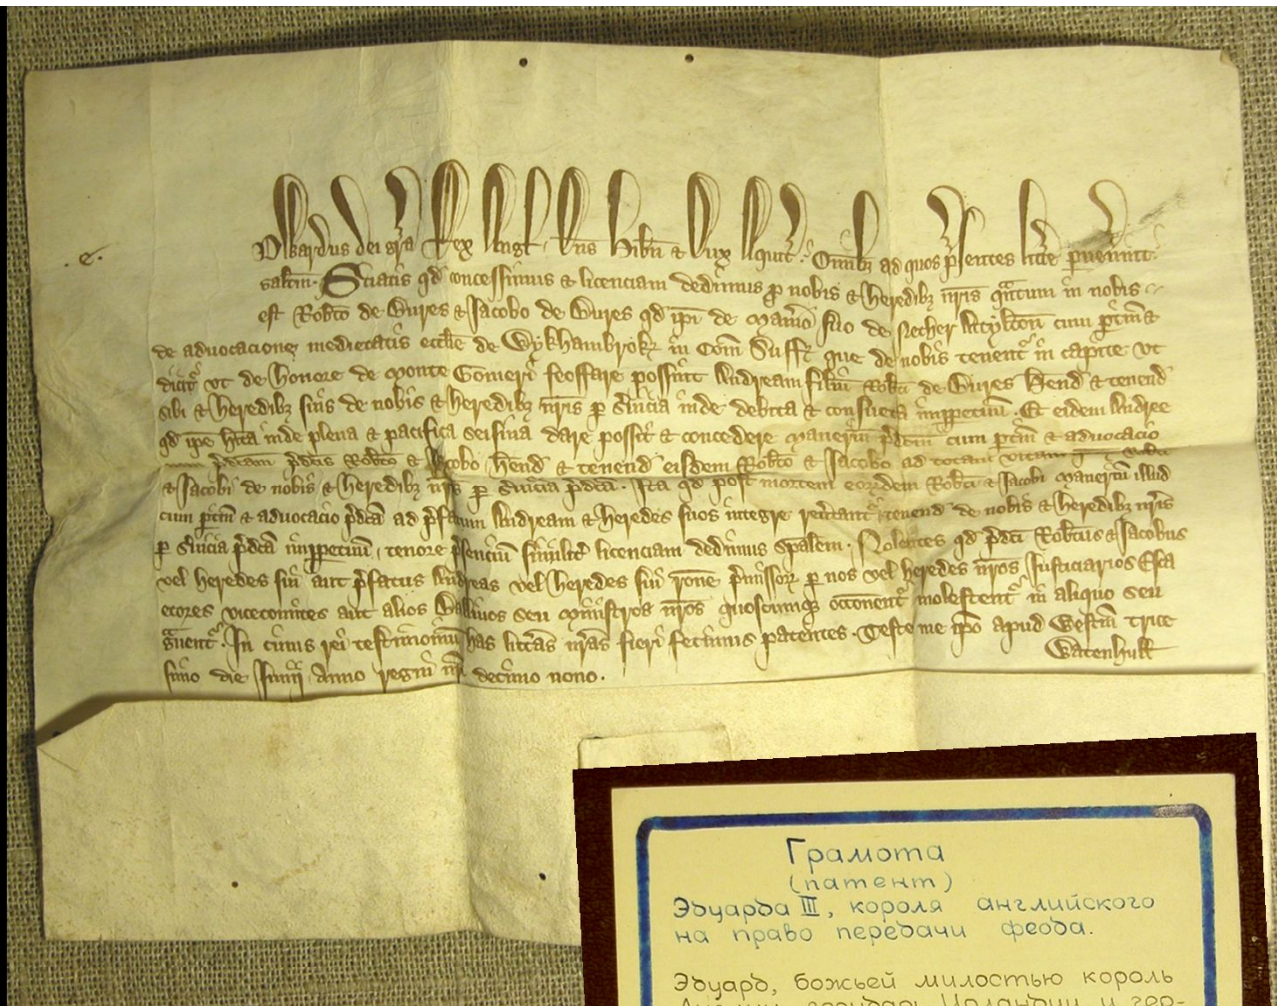 .e.
Edwardus dei gra Rex Angl Dns Hibn & Dux Aquit. Omibz ad quos psentes lre pvenint
saltm. Sciatis qd concessimus & licenciam dedimus p nobis & heredibz nris qntum in nobis
est Robto de Bures & Jacobo de Bures qd ipi de Manio suo de Nether cum ptin &
de advocacione medietatis ecclie de Wykhambrok in Com Suff que de nobis tenent in capite ut
dicit ut de honore de Monte Gomeri feoffare possint Andream filiu Robti de Bures hend & tenend
sibi & heredibz suis de nobis & heredibz nris p svicia inde debita & consueta imppetuu. Et eidem Andree
qd ipe hita inde plena & pacifica seisina dare possit & concedere Maneriu pdcm cum ptin & advocacio
pdcam pdcis Robto & Jacobo hend & tenend eisdem Robto & Jacobo ad totam vitam
& Jacobi de nobis & heredibz nris p svicia pdca. Ita qd post mortem eordem Robti & Jacobi Maneriu illud
cum ptin & advocacio pdca ad pfatum Andream & heredes suos integre revtant tenend de nobis & heredibz nris
p svicia pdca imppetuu, tenore psenciu similit licenciam dedimus spalem. Nolentes qd pdci Robtus & Jacobus
vel heredes sui aut pfatus Andreas vel heredes sui rone pmissor p nos vel heredes nros Justiciarios Esca
etores vicecomites aut alios Ballivos seu Ministros nros quoscumq occonent molestent in aliquo seu
gvent. In cuius rei testimoniu has litras nras fieri fecimus patentes. Teste me ipo apud Westm trice
simo die Junii anno regni nri decimo nono.
Watenhull
Грамота
(патент)
Эдуарда III, короля английского
на право передачи феода.
Эдуард, божьей милостью король
Англии, государь Ирландии и гер-